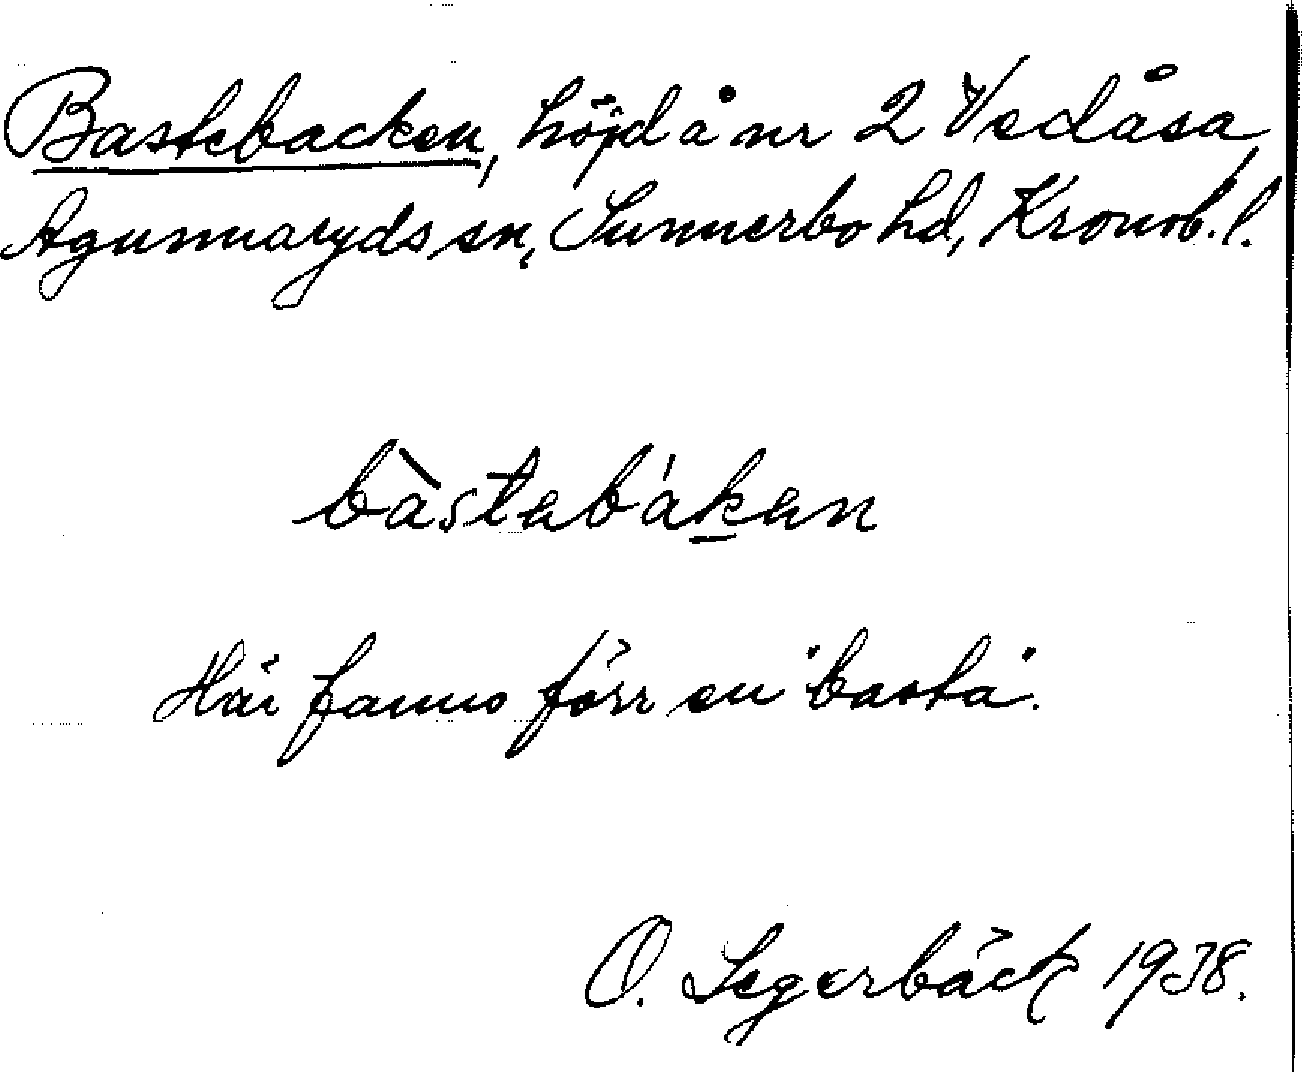 Bastebacken, höjd å nr 2 Vedåsa,
Agunnaryds sn, Sunnerbo hd, Kronob. l.
bàstabákan
Här fanns förr en "basta".
O. Segerbäck 1938.